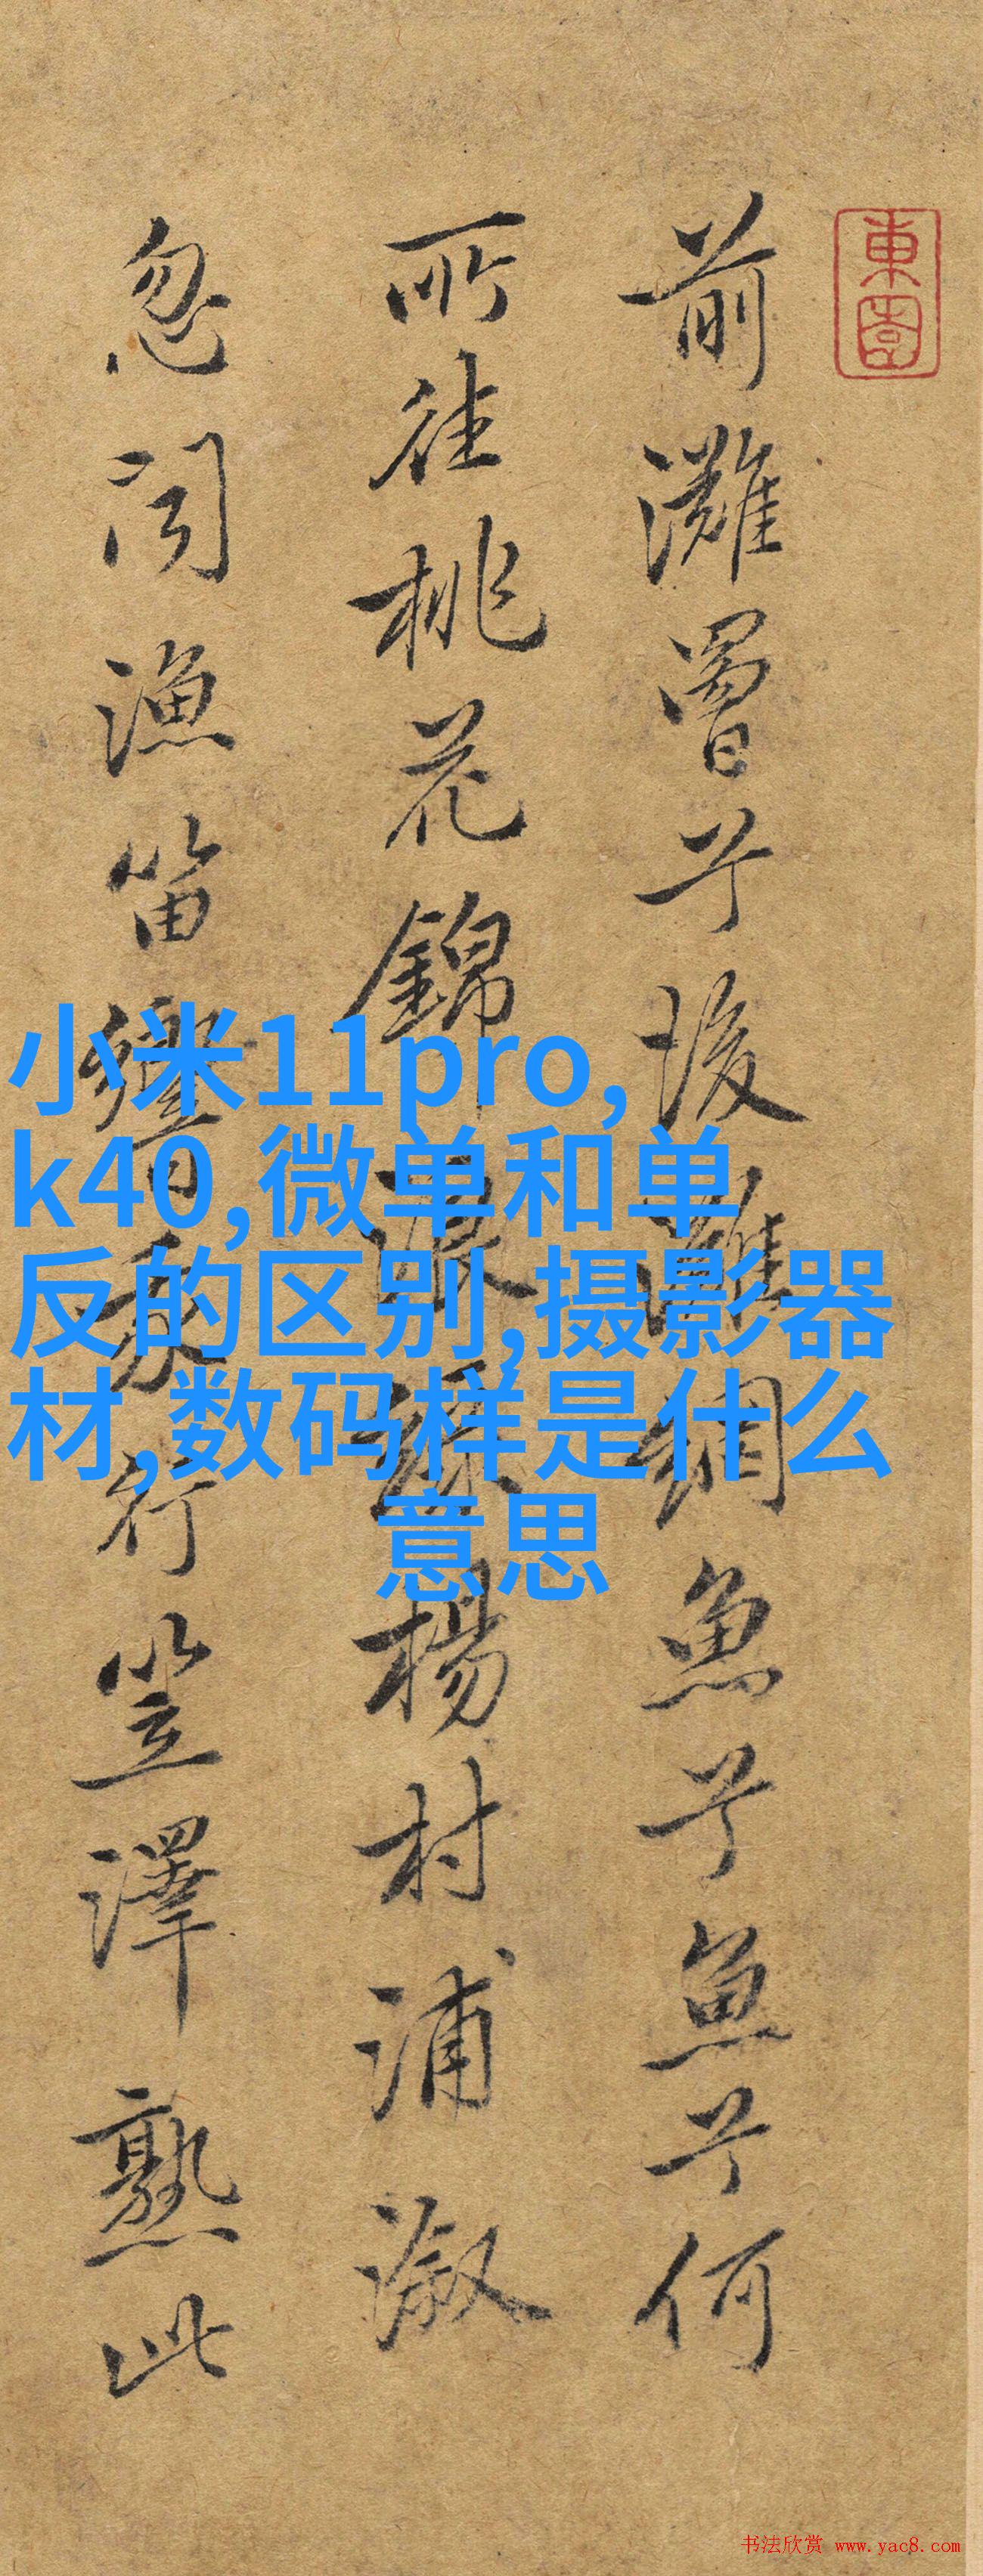 東園
前灘罾兮後灘網魚兮魚兮何
所往桃花錦浪綠楊村浦溆
忽聞漁笛響我行笠澤熟此
小米11pro,
k40,微单和单
反的区别,摄影器
材,数码样是什么
意思
书法欣赏 www.yac8.com